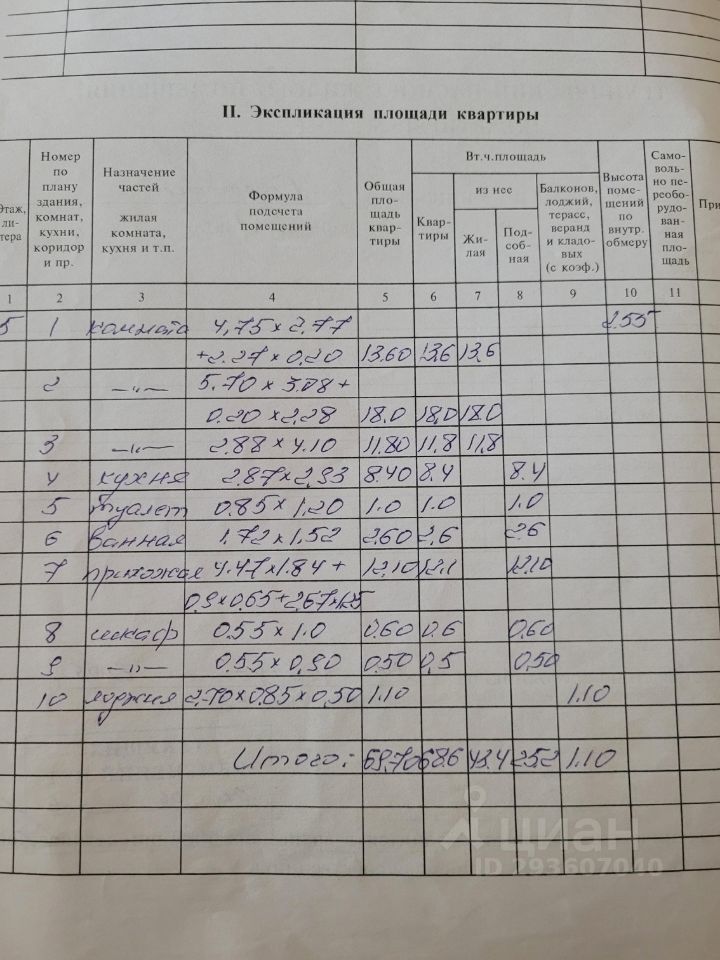 II. Экспликация площади квартиры
Этаж, ли- тера
Номер по плану здания, комнат, кухни, коридор и пр.
Назначение частей жилая комната, кухня и т.п.
Формула подсчета помещений
Общая пло- щадь квар- тиры
Вт.ч.площадь
Квар- тиры
из нее
Жи- лая
Под- соб- ная
Балконов, лоджий, терасс, веранд и кладо- вых (с коэф.)
Высота поме- щений по внутр. обмеру
Само- воль- но пе- реобо- рудо- ван- ная пло- щадь
При
1 2 3 4 5 6 7 8 9 10 11
5 1 комната 4,75 x 2.77 2.55
+2.27 x 0,20 13.60 13,6 13,6
2 —"— 5.70 x 3.08 +
0.20 x 2,28 18.0 18,0 18.0
3 —"— 2.88 x 4.10 11.80 11.8 11,8
4 кухня 2.87 x 2,93 8.40 8.4 8.4
5 туалет 0,85 x 1,20 1.0 1.0 1.0
6 ванная 1,72 x 1,52 2,60 2,6 2.6
7 прихожая 4.47 x 1.84 + 12,10 12.1 12.10
0,9 x 0.65 + 2,67 x
8 шкаф 0.55 x 1.0 0,60 0,6 0,60
9 —"— 0.55 x 0,90 0,50 0,5 0,50
10 лоджия 2,70 x 0.85 x 0,50 1.10 1.10
Итого: 69,70 68.6 43.4 25.2 1.10
циан
ID 293607040